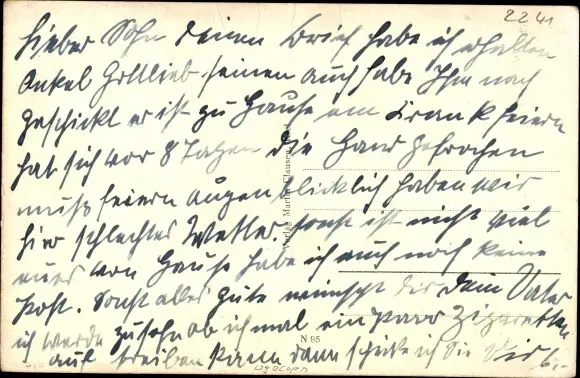 2241
Lieber Sohn deinen Brief habe ich erhalten
Onkel Gottlieb seinen auch habe Ihm nach
geschickt er ist zu Hause am Krank feiern
hat sich vor 8 Tagen die Hand gebrochen
muß feiern augen blicklich haben wir
hir schlechtes Wetter. sonst ist nicht viel
neues von Hause habe ich auch noch keine
Post. Sonst alles gute wünscht dir dein Vater
ich werde zusehn ob ich mal ein paar Zigaretten
auf treiben kann dann schicke ich Sie Dir
Verlag Martin Clausen
N 85